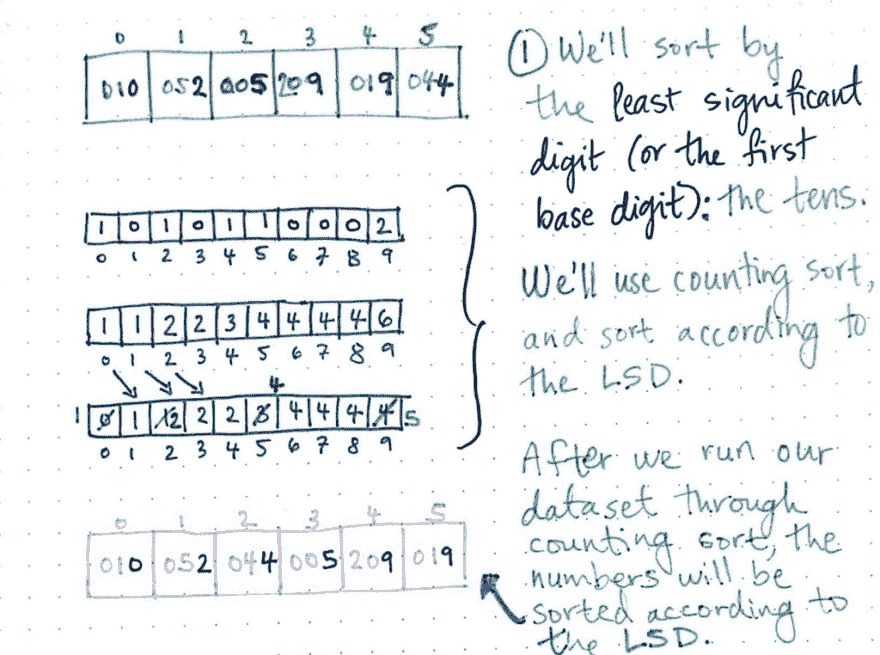 0 1 2 3 4 5
010 052 005 209 019 044
1 0 1 0 1 1 0 0 0 2
0 1 2 3 4 5 6 7 8 9
1 1 2 2 3 4 4 4 4 6
0 1 2 3 4 5 6 7 8 9
4
1 0 1 12 2 2 3 4 4 4 4 5
0 1 2 3 4 5 6 7 8 9
0 1 2 3 4 5
010 052 044 005 209 019
1 We'll sort by
the least significant
digit (or the first
base digit): the tens.
We'll use counting sort,
and sort according to
the LSD.
After we run our
dataset through
counting sort, the
numbers will be
sorted according to
the LSD.